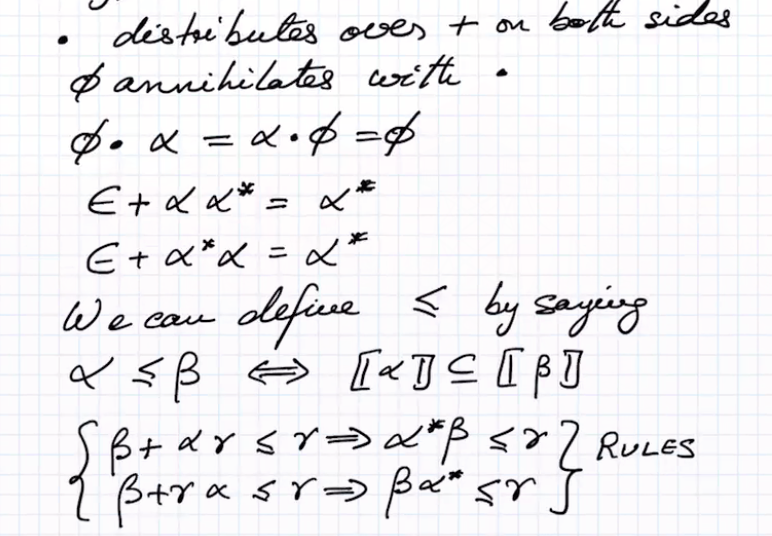 • distributes over + on both sides
ϕ annihilates with •
ϕ • α = α • ϕ = ϕ
ϵ + α α* = α*
ϵ + α*α = α*
We can define ≤ by saying
α ≤ β ⟺ ⟦α⟧ ⊆ ⟦β⟧
{ β + αγ ≤ γ ⟹ α*β ≤ γ } RULES
{ β + γα ≤ γ ⟹ βα* ≤ γ }